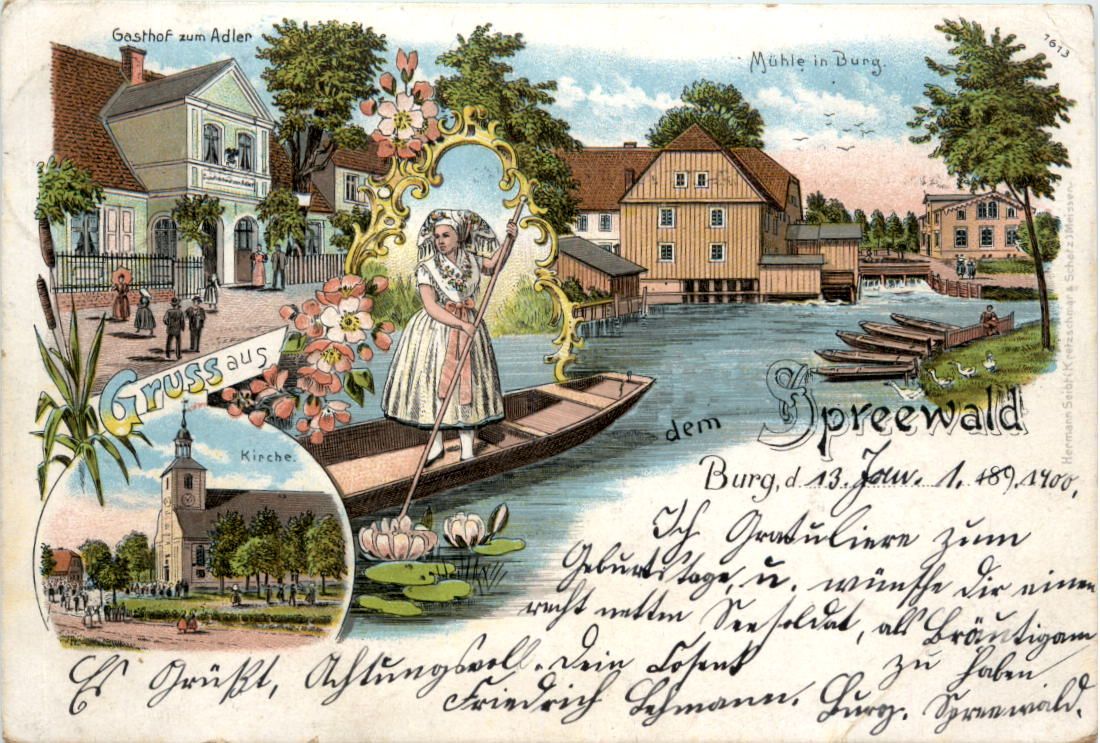 Gasthof zum Adler
Mühle in Burg.
1613
Gruss aus
dem Spreewald
Kirche.
Hermann Seibt (Kretzschmar & Schatz) Meissen.
Burg, d. 13. Jan. 1. 189. 1900.
Ich Gratuliere zum
Geburtstage, u. wünsche Dir einen
recht netten Seesoldat, als Bräutigam
zu haben
Es Grüßt, Achtungsvoll. Dein
Friedrich Lehmann. Burg. Spreewald.